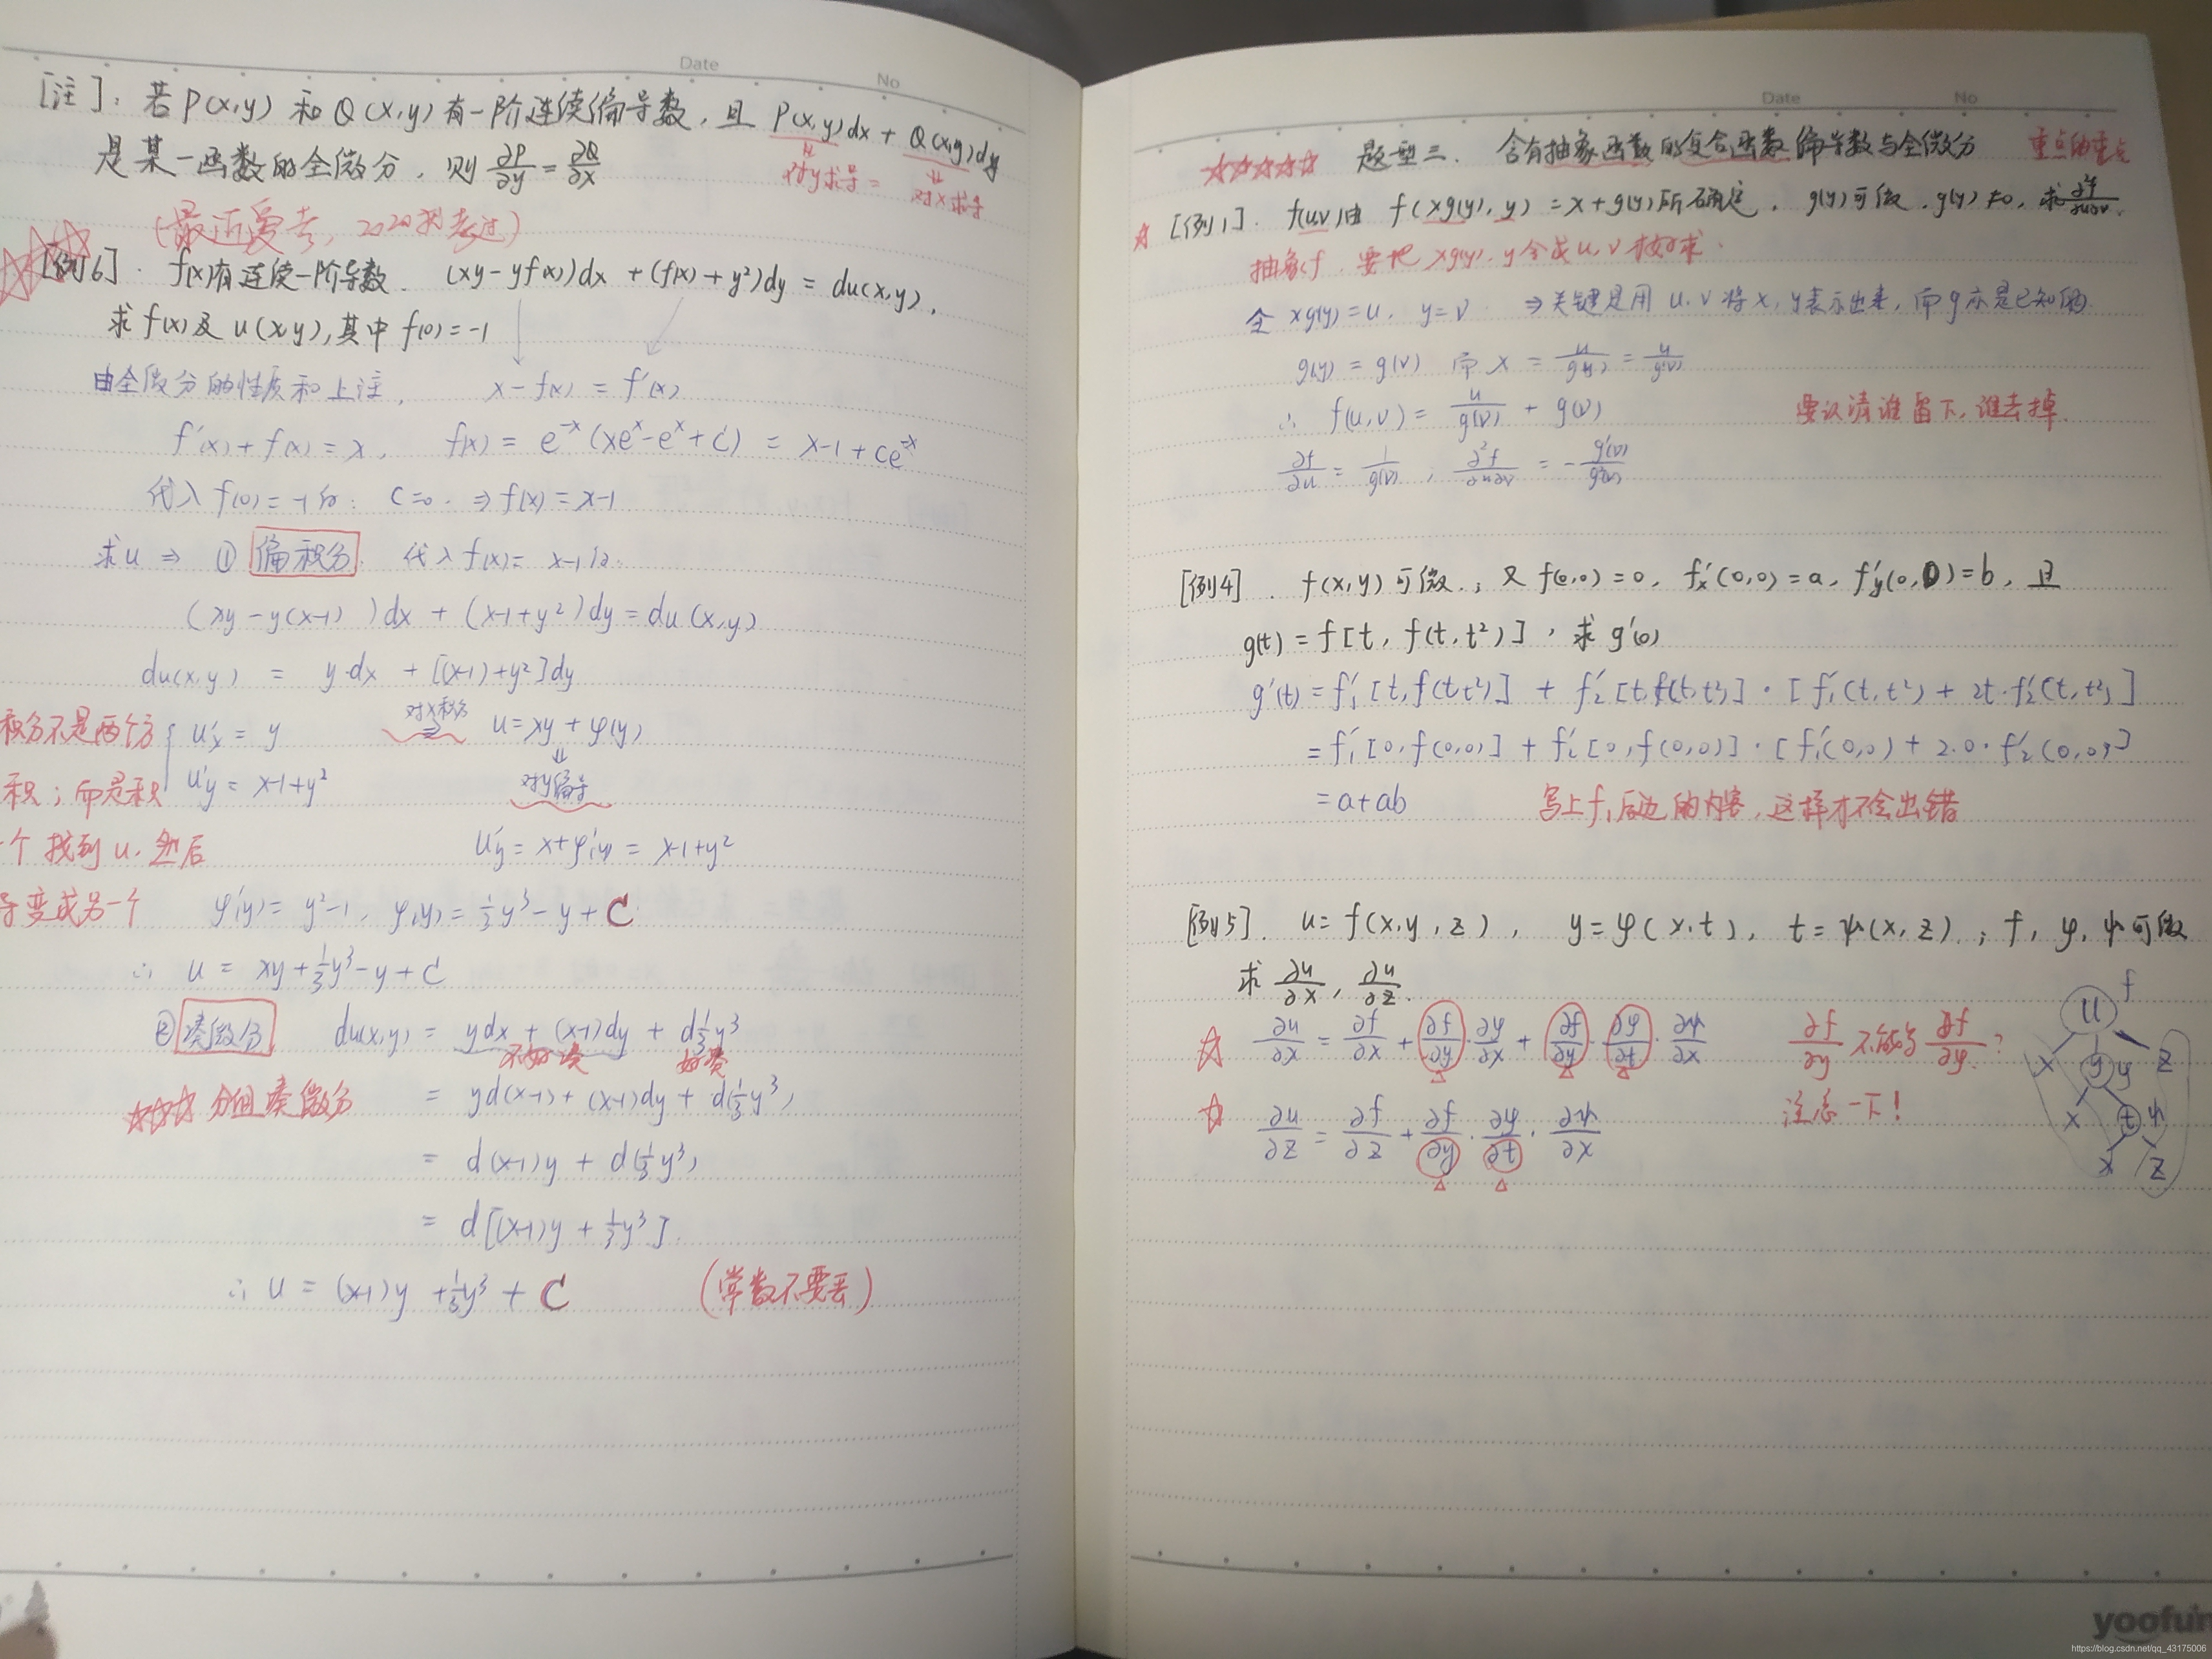 Date No
[注]：若P(x,y) 和 Q(x,y)有一阶连续偏导数，且 P(x,y)dx + Q(x,y)dy
是某一函数的全微分，则 ∂P/∂y = ∂Q/∂x
⇓ 对y求导 = ⇓ 对x求导
(最近爱考，2020刚考过)
[例6]. f(x)有连续一阶导数. (xy-yf(x))dx + (f(x)+y²)dy = du(x,y),
求f(x)及u(x,y),其中f(0)=-1
由全微分的性质和上注, x-f(x) = f'(x)
f'(x)+f(x)=x, f(x) = e^{-x}(xe^x-e^x+C) = x-1+ce^{-x}
代入f(0)=-1得: C=0. ⇒ f(x)=x-1
求u ⇒ ① 偏积分. 代入f(x)= x-1得:
(xy-y(x-1) )dx + (x-1+y²)dy=du(x,y)
du(x,y) = y·dx + [(x-1)+y²]dy
积分不是两个分
u'x = y 对x积分 ⇒ u=xy+φ(y)
积；而是积
u'y = x-1+y² ⇓ 对y偏导
个找到u,然后
u'y = x+φ'(y) = x-1+y²
导变成另一个
φ'(y)= y²-1, φ(y)= 1/3 y³-y+C
∴ u = xy+1/3 y³-y+C
② 凑微分 du(x,y) = ydx + (x-1)dy + d 1/3 y³
不好凑 好凑
分组凑微分 = yd(x-1)+(x-1)dy+d(1/3 y³)
= d(x-1)y + d(1/3 y³)
= d[(x-1)y + 1/3 y³].
∴ u = (x-1)y + 1/3 y³ + C (常数不要丢)
Date No
☆☆☆☆☆ 题型三. 含有抽象函数的复合函数偏导数与全微分 重点的重点
☆ [例1]. f(u,v)由 f(xg(y), y) = x+g(y)所确定, g(y)可微, g(y)≠0, 求 ∂²f/∂u∂v.
抽象f, 要把xg(y), y令成u,v才好求.
令 xg(y)=u, y=v ⇒关键是用u,v将x,y表示出来,而g亦是已知的
g(y) = g(v) 而 x = u/g(y) = u/g(v)
∴ f(u,v) = u/g(v) + g(v)
要认清谁留下,谁去掉.
∂f/∂u = 1/g(v) ; ∂²f/∂u∂v = - g'(v)/g²(v)
[例4]. f(x,y)可微.; 又f(0,0)=0, f'x(0,0)=a, f'y(0,0)=b, 且
g(t) = f[t, f(t,t²)], 求g'(0)
g'(t) = f'1[t,f(t,t²)] + f'2[t,f(t,t²)]·[f'1(t,t²) + 2t·f'2(t,t²)]
= f'1[0,f(0,0)] + f'2[0,f(0,0)]·[f'1(0,0) + 2·0·f'2(0,0)]
= a+ab 写上f,后边的内容,这样才不会出错
[例5]. u= f(x,y,z), y=φ(x,t), t=ψ(x,z).; f, φ, ψ可微
求 ∂u/∂x, ∂u/∂z.
☆ ∂u/∂x = ∂f/∂x + ∂f/∂y · ∂φ/∂x + ∂f/∂y · ∂φ/∂t · ∂ψ/∂x ∂f/∂y 不能写 ∂f/∂φ ?
☆ ∂u/∂z = ∂f/∂z + ∂f/∂y · ∂φ/∂t · ∂ψ/∂x 注意一下!
u f
x y y z
x t ψ
x z
yoofun
https://blog.csdn.net/qq_43175006